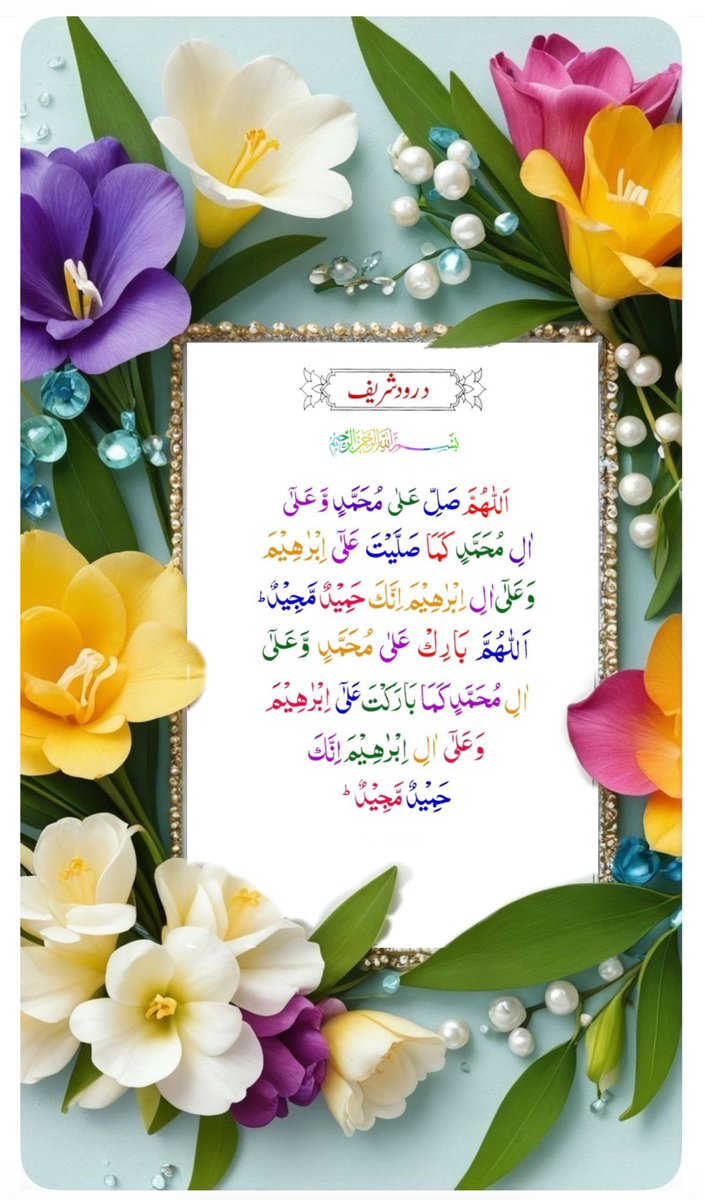 درود شریف
بِسْمِ اللّٰهِ الرَّحْمٰنِ الرَّحِيْمِ
اَللّٰهُمَّ صَلِّ عَلٰى مُحَمَّدٍ وَّعَلٰٓى
اٰلِ مُحَمَّدٍ كَمَا صَلَّيْتَ عَلٰٓى اِبْرٰهِيْمَ
وَعَلٰٓى اٰلِ اِبْرٰهِيْمَ اِنَّكَ حَمِيْدٌ مَّجِيْدٌ ؕ
اَللّٰهُمَّ بَارِكْ عَلٰى مُحَمَّدٍ وَّعَلٰٓى
اٰلِ مُحَمَّدٍ كَمَا بَارَكْتَ عَلٰٓى اِبْرٰهِيْمَ
وَعَلٰٓى اٰلِ اِبْرٰهِيْمَ اِنَّكَ
حَمِيْدٌ مَّجِيْدٌ ؕ